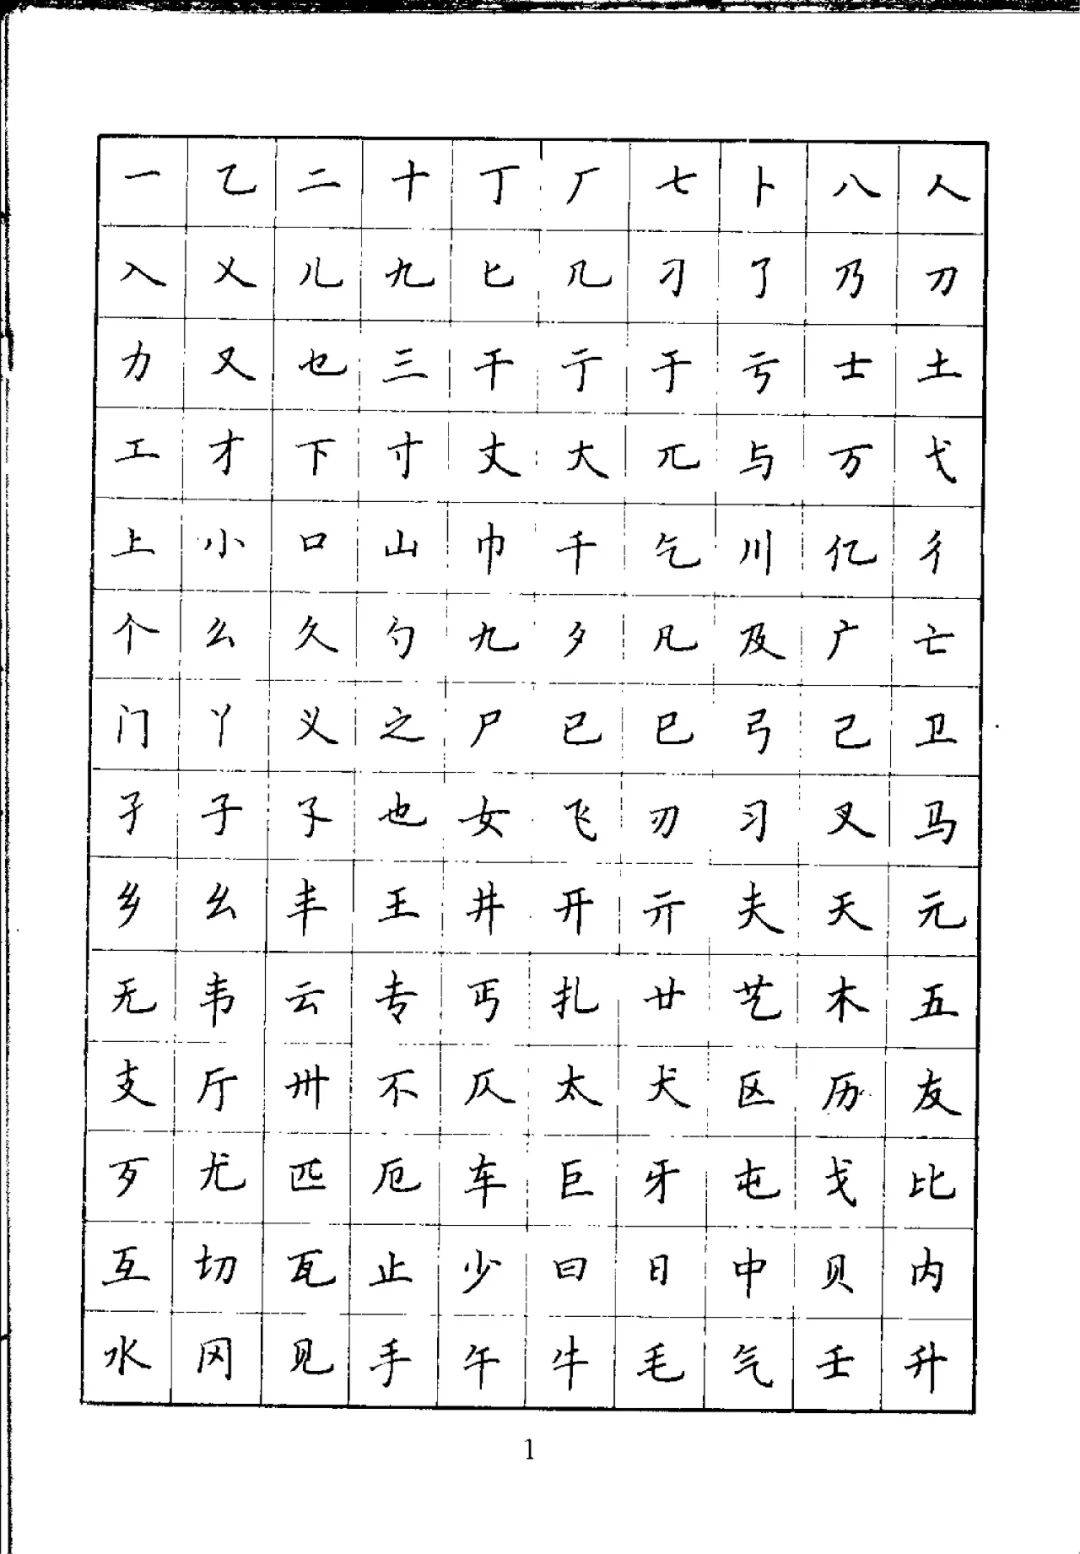 一 乙 二 十 丁 厂 七 卜 八 人
入 乂 儿 九 匕 几 刁 了 乃 刀
力 又 乜 三 干 亍 于 亏 士 土
工 才 下 寸 丈 大 兀 与 万 弋
上 小 口 山 巾 千 乞 川 亿 彳
个 么 久 勺 九 夕 凡 及 广 亡
门 丫 义 之 尸 已 巳 弓 己 卫
孑 子 孓 也 女 飞 刃 习 叉 马
乡 幺 丰 王 井 开 亓 夫 天 元
无 韦 云 专 丐 扎 廿 艺 木 五
支 厅 卅 不 仄 太 犬 区 历 友
歹 尤 匹 厄 车 巨 牙 屯 戈 比
互 切 瓦 止 少 曰 日 中 贝 内
水 冈 见 手 午 牛 毛 气 壬 升
1